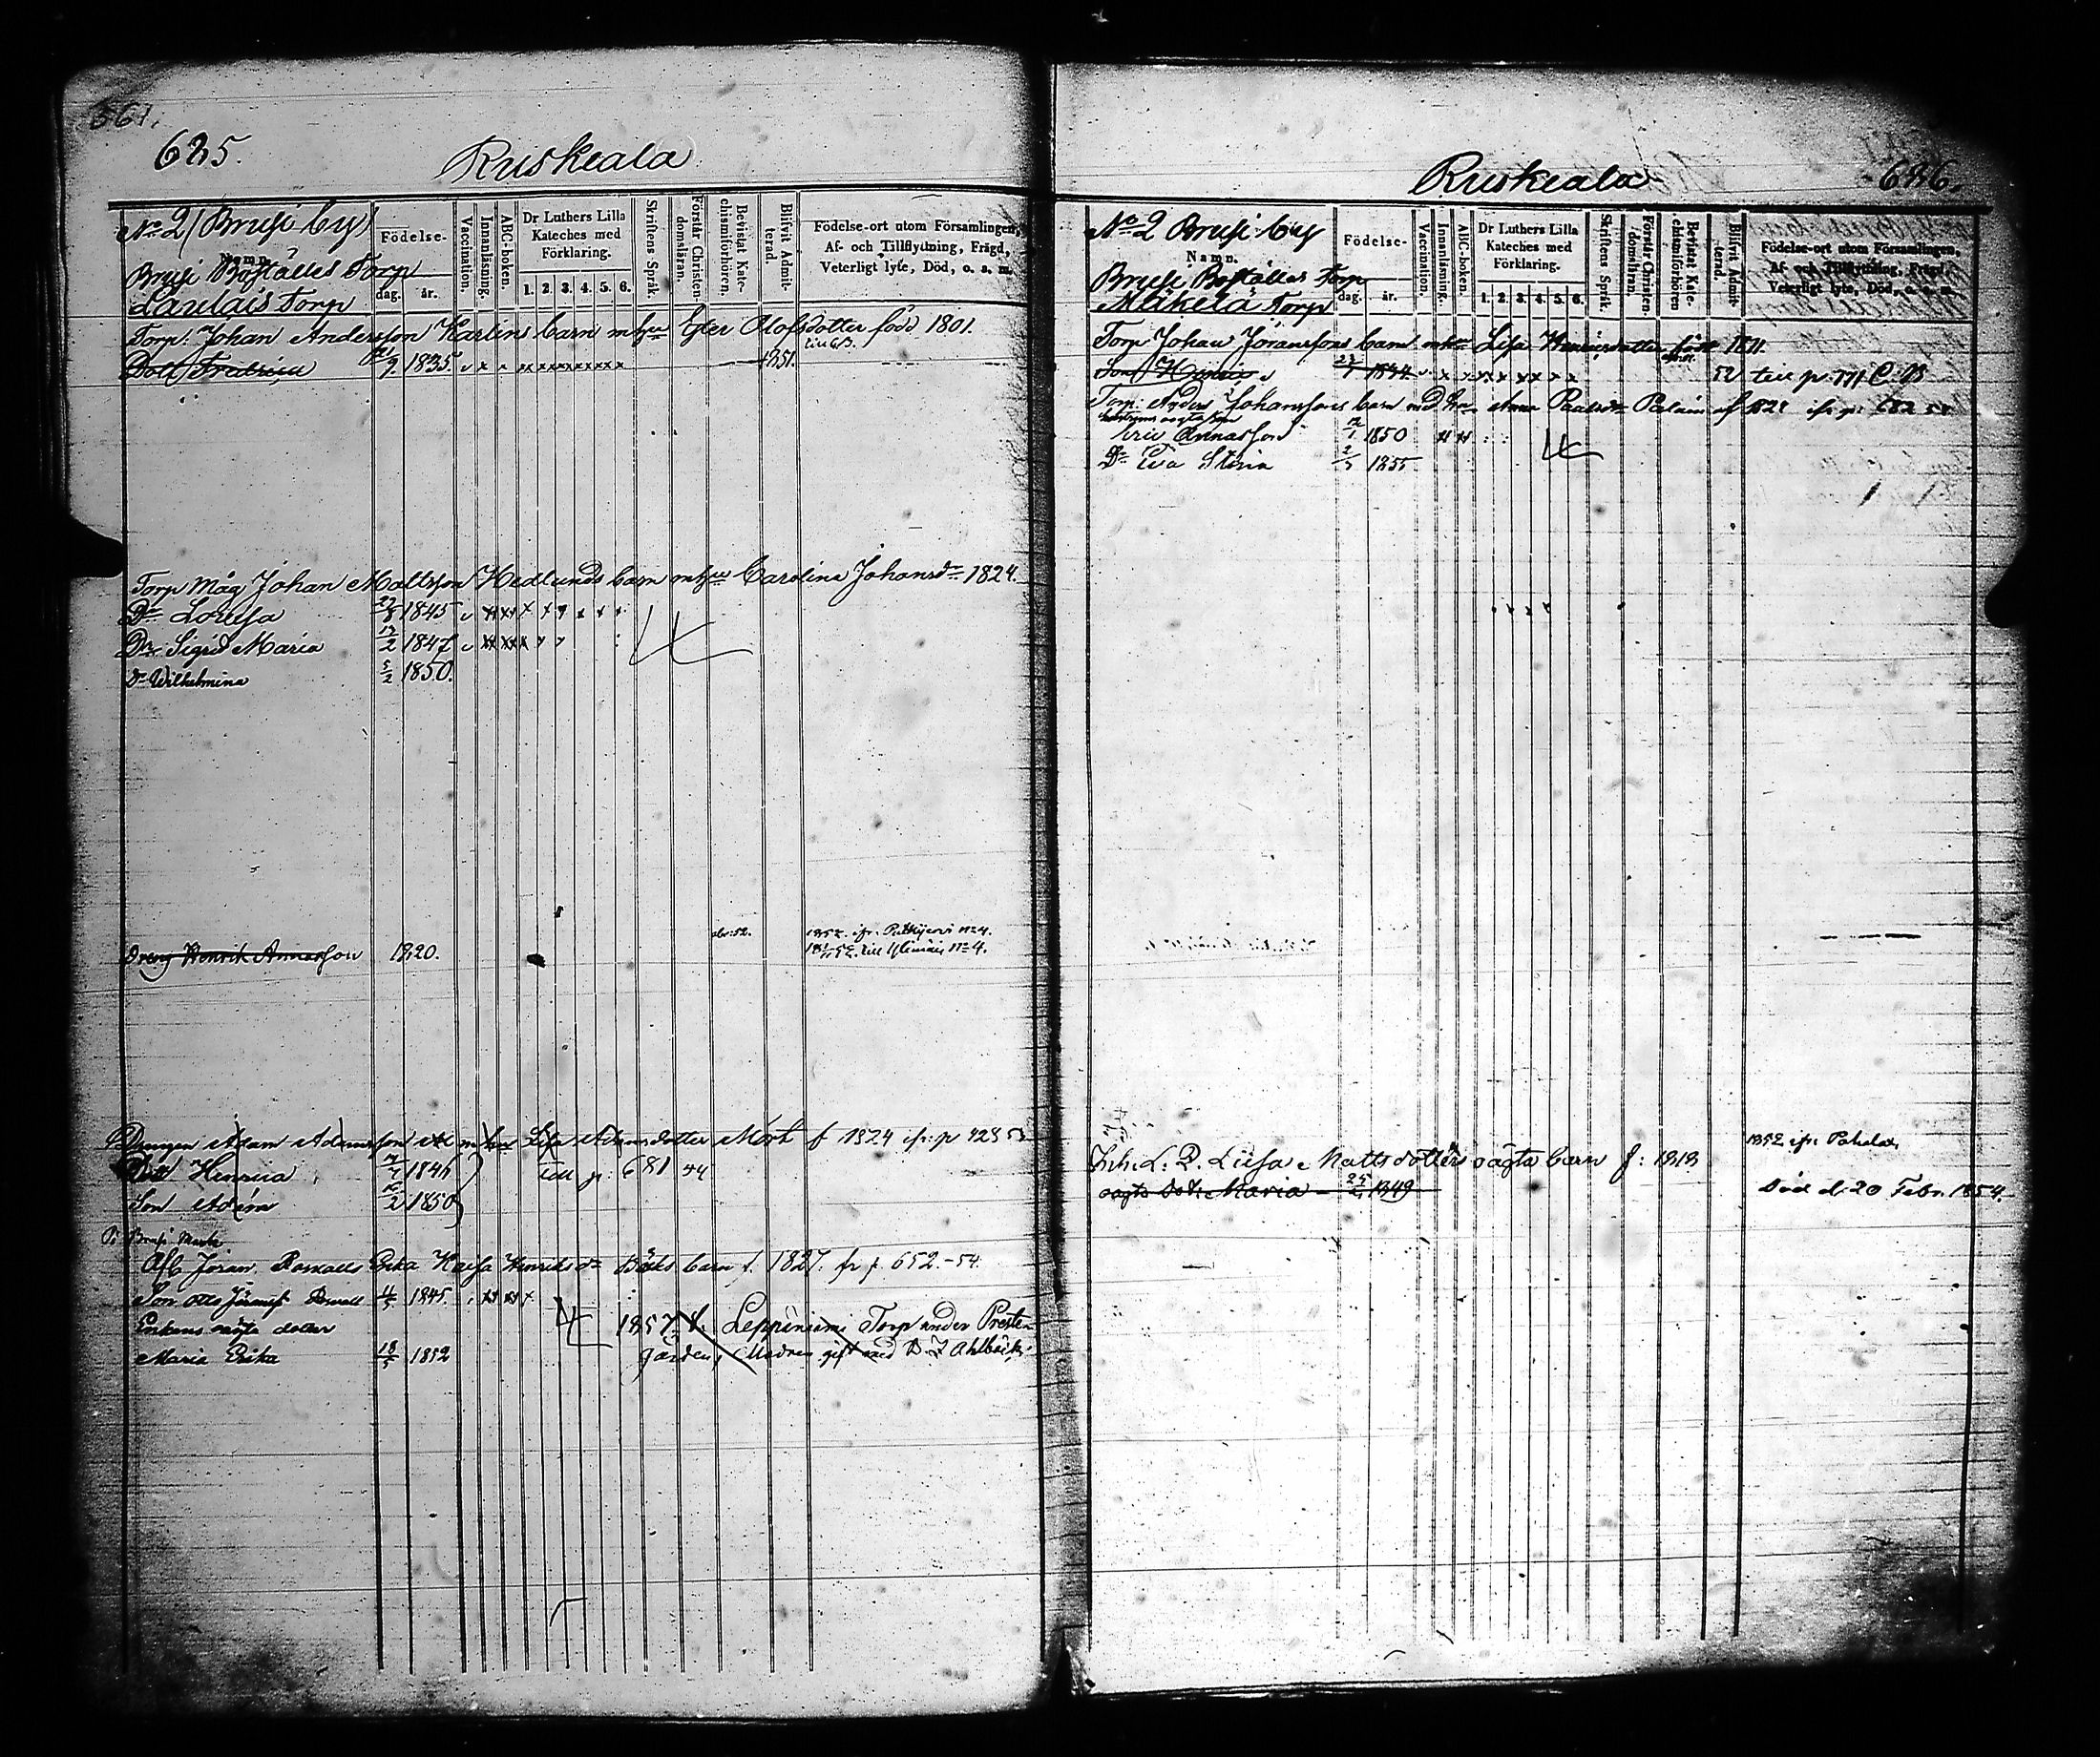 561.
685.
Ruskeala
No 2 (Brusi by)
Namn.
Brusi Boställes Torp
Laulais Torp
Födelse-
dag. år.
Vaccination.
Innanläsning.
ABC-boken.
Dr Luthers Lilla
Kateches med
Förklaring.
1. 2. 3. 4. 5. 6.
Skriftens Språk.
Förstår Christen-
domsläran.
Bevistat Kate-
chismiförhören.
Blifvit Admit-
terad.
Födelse-ort utom Församlingen,
Af- och Tillflyttning, Frägd,
Veterligt lyte, Död, o. s. m.
Torp: Johan Andersson Karlins barn m hu Ester Olofsdotter född 1801.
Dott Fredrica 7. 1835. 1851.
Torp Måg Johan Mattsson Hedlunds barn m hu Carolina Johansdr 1824.
Dr Lovisa 27/8 1845
Dr Sigrid Maria 13/2 1847
Dr Wilhelmina 5/2 1850.
abs: 52. 1852. ifr: Putkijervi No 4.
Dreng Henrik Annasson 1820. till Ylimäis No 4.
Drengen Adam Adamsson m hu Lisa Adamsdotter Mört f 1824 ifr: p 428 53
Dott Henrica 1846 till p: 681 54
Son Adam 2 1850
På Brusi Marke
Afl Jöran Roxells Enka Kaisa Henriksdr Bäcks barn f. 1827. fr p. 652.-54.
Son Otto Jöransf Roxell 4/5 1845.
Enkans oägta dotter
1857 t. Leppiniemi Torp under Preste-
Maria Erika 18/5 1852 gården, Modren gift med D J Ahlbäck.
Ruskeala
686.
No 2 Brusi by
Namn.
Brusi Boställes Torp
Mäkelä Torp
Födelse-
dag. år.
Vaccination.
Innanläsning.
ABC-boken.
Dr Luthers Lilla
Kateches med
Förklaring.
1. 2. 3. 4. 5. 6.
Skriftens Språk.
Förstår Christen-
domsläran.
Bevistat Kate-
chismiförhören
Blifvit Admit-
terad.
Födelse-ort utom Församlingen,
Af- och Tillflyttning, Frägd,
Veterligt lyte, Död, o. s. m.
Torp Johan Jöranssons barn m hu Lisa Henricsdotter född 1811.
Son Henric 1844 52 till p: 771 C: B
Torp: Anders Johanssons barn med hu Anna Paalsdr Palain af 1828 ifr p: 682 54
hustruns oägta son
Eric Annasson 12/1 1850
Dr Eva Stina 2/5 1855
1852 ifr: Pohela
Inh. L. P. Liisa Mattsdotters oägta barn f: 1818
oägta Dotr Maria - 25/4 1849 Död d: 20 Febr. 1854.